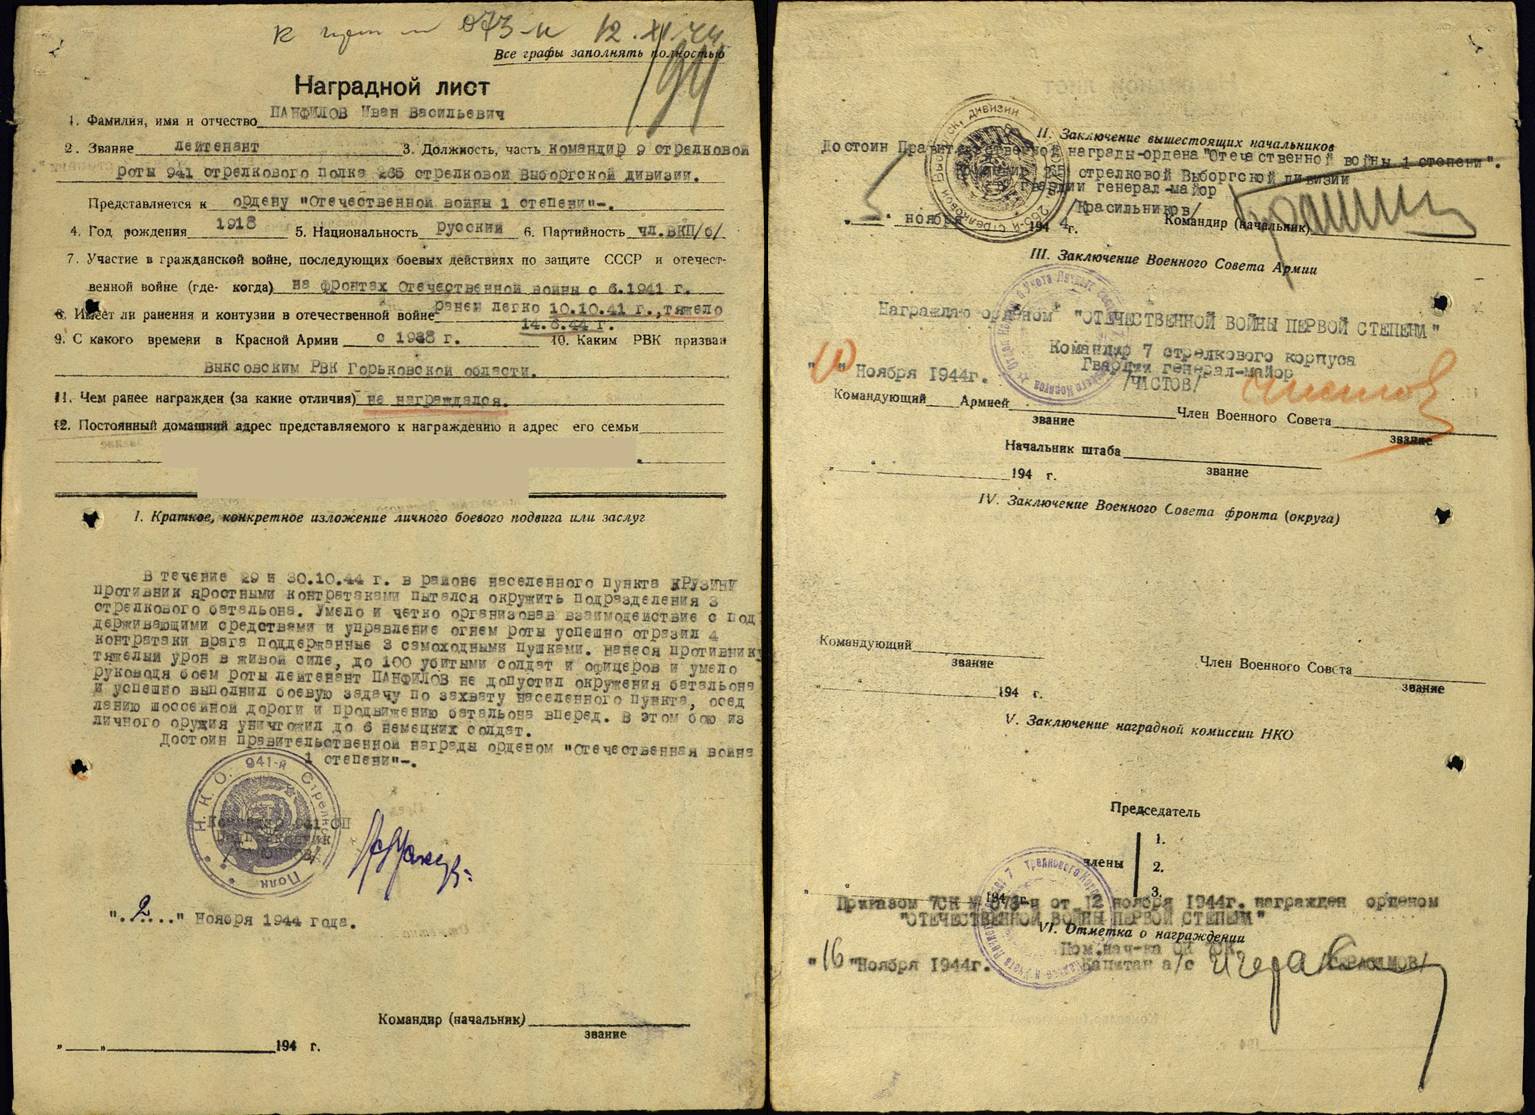 К 073-н 12.XI.44
Все графы заполнять полностью
Наградной лист
1. Фамилия, имя и отчество ПАНФИЛОВ Иван Васильевич
2. Звание лейтенант 3. Должность, часть командир 9 стрелковой
роты 941 стрелкового полка 265 стрелковой Выборгской дивизии.
Представляется к ордену "Отечественной войны 1 степени"-.
4. Год рождения 1918 5. Национальность русский 6. Партийность чл.ВКП/б/
7. Участие в гражданской войне, последующих боевых действиях по защите СССР и отечест-
венной войне (где- когда) на фронтах Отечественной войны с 6.1941 г.
8. Имеет ли ранения и контузии в отечественной войне ранен легко 10.10.41 г., тяжело
14.6.44 г.
9. С какого времени в Красной Армии с 1938 г. 10. Каким РВК призван
Выксовским РВК Горьковской области.
11. Чем ранее награжден (за какие отличия) не награждался.
12. Постоянный домашний адрес представляемого к награждению и адрес его семьи
I. Краткое, конкретное изложение личного боевого подвига или заслуг
В течение 29 и 30.10.44 г. в районе населенного пункта КРУЗИНИ
противник яростными контратаками пытался окружить подразделения 3
стрелкового батальона. Умело и четко организовав взаимодействие с под
держивающими средствами и управление огнем роты успешно отразил 4
контратаки врага поддержанные 3 самоходными пушками. Нанеся противнику
тяжелый урон в живой силе, до 100 убитыми солдат и офицеров и умело
руководя боем роты лейтенант ПАНФИЛОВ не допустил окружения батальона
и успешно выполнил боевую задачу по захвату населенного пункта, осед
ланию шоссейной дороги и продвижению батальона вперед. В этом бою из
личного оружия уничтожил до 6 немецких солдат.
Достоин правительственной награды орденом "Отечественная война
1 степени"-.
Н. К. О. 941-й Стрелковый Полк
Командир 941 СП
Подполковник
".2..." Ноября 1944 года.
Командир (начальник)
звание
" " 194 г.
II. Заключение вышестоящих начальников
Достоин Правительственной награды-ордена "Отечественной войны 1 степени".
Командир 265 стрелковой Выборгской дивизии
Гвардии генерал-майор
/Красильников/
"5" ноября 1944 г. Командир (начальник)
III. Заключение Военного Совета Армии
Награждаю орденом "ОТЕЧЕСТВЕННОЙ ВОЙНЫ ПЕРВОЙ СТЕПЕНИ"
Командир 7 стрелкового корпуса
Гвардии генерал-майор
/ЧИСТОВ/
"10" Ноября 1944г.
Командующий Армией Член Военного Совета
звание звание
Начальник штаба
звание
" " 194 г.
IV. Заключение Военного Совета фронта (округа)
Командующий
звание
Член Военного Совета
звание
" " 194 г.
V. Заключение наградной комиссии НКО
Председатель
члены
1.
2.
3.
" " 194 г.
Приказом 7СК № 073-н от 12 ноября 1944г. награжден орденом
"ОТЕЧЕСТВЕННОЙ ВОЙНЫ ПЕРВОЙ СТЕПЕНИ"
VI. Отметка о награждении
Пом.нач-ка ОК 7СК
Капитан а/с /ГЕРАСИМОВ/
"16" Ноября 1944г.